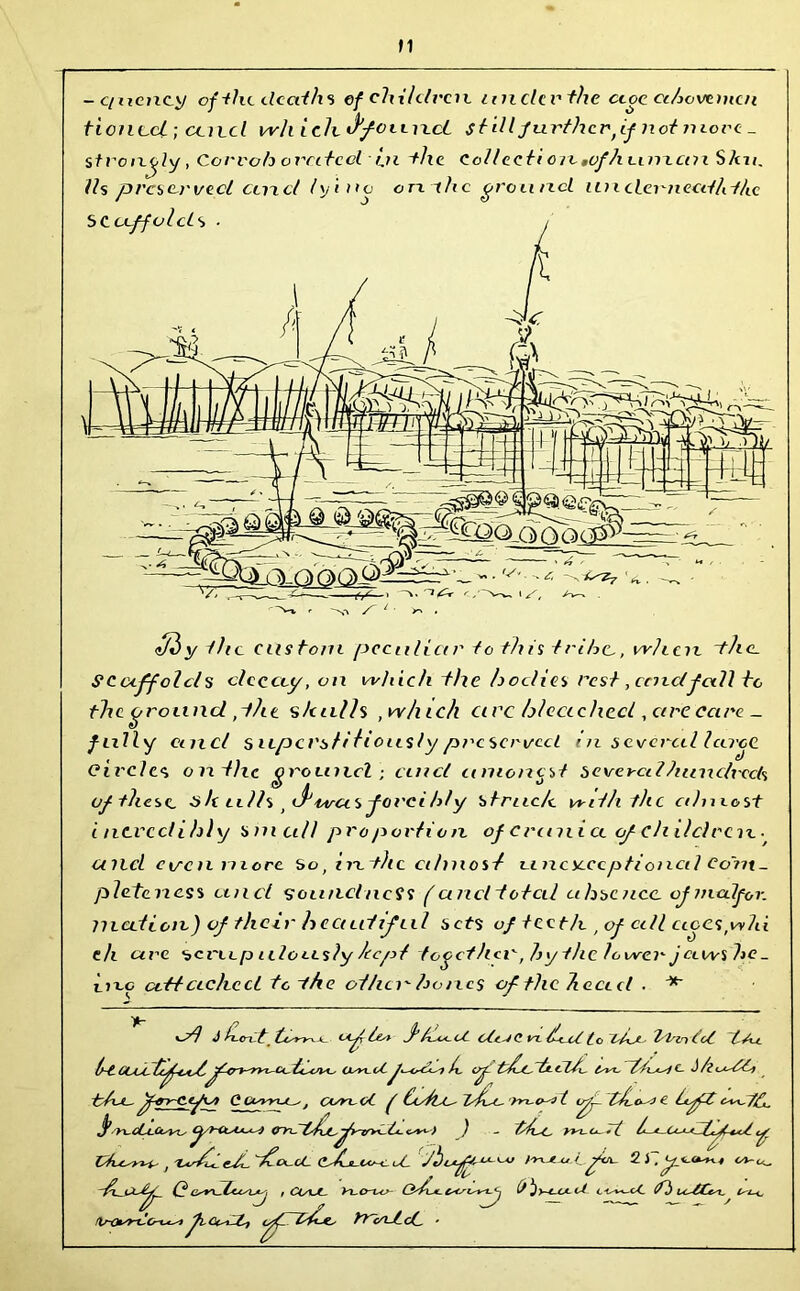 11
- quency of the deaths of children under the age abovemen
tioned; and which I found still further, if not more -
strongly, Corroborated in the Collection, of human Sku.
lls preserved and lying on the ground underneath the
Scaffolds.
By the custom peculiar to this tribe, when the
Scaffolds decay, on which the bodies rest, and fall to
the ground, the skulls, which are bleached, are care -
fully and superstitiously preserved in several large
Circles on the ground; and amongst several hundreds
of these skulls, I was forcibly struck with the almost
incredibly small proportion of Crania of Children;
and even more so, in the almost unexceptional Com -
pleteness and soundness (and total absence of malfor.
mation) of their beautiful sets of teeth, of all ages, whi
ch are scrupulously kept together, by the lower jaws be -
ing attached to the other bones of the head. *
* A short time after I had exhibited to the World the
beautiful formation and finish of the teeth in these Skulls,
the forceps Carrus, and (like the most of those left in the
Indian graves on the frontiers) - the most beautiful of
them, which had cheered Buffalo meat for 25 years on
half Century, are now chewing Bread and Butter, in
various parts of the World.